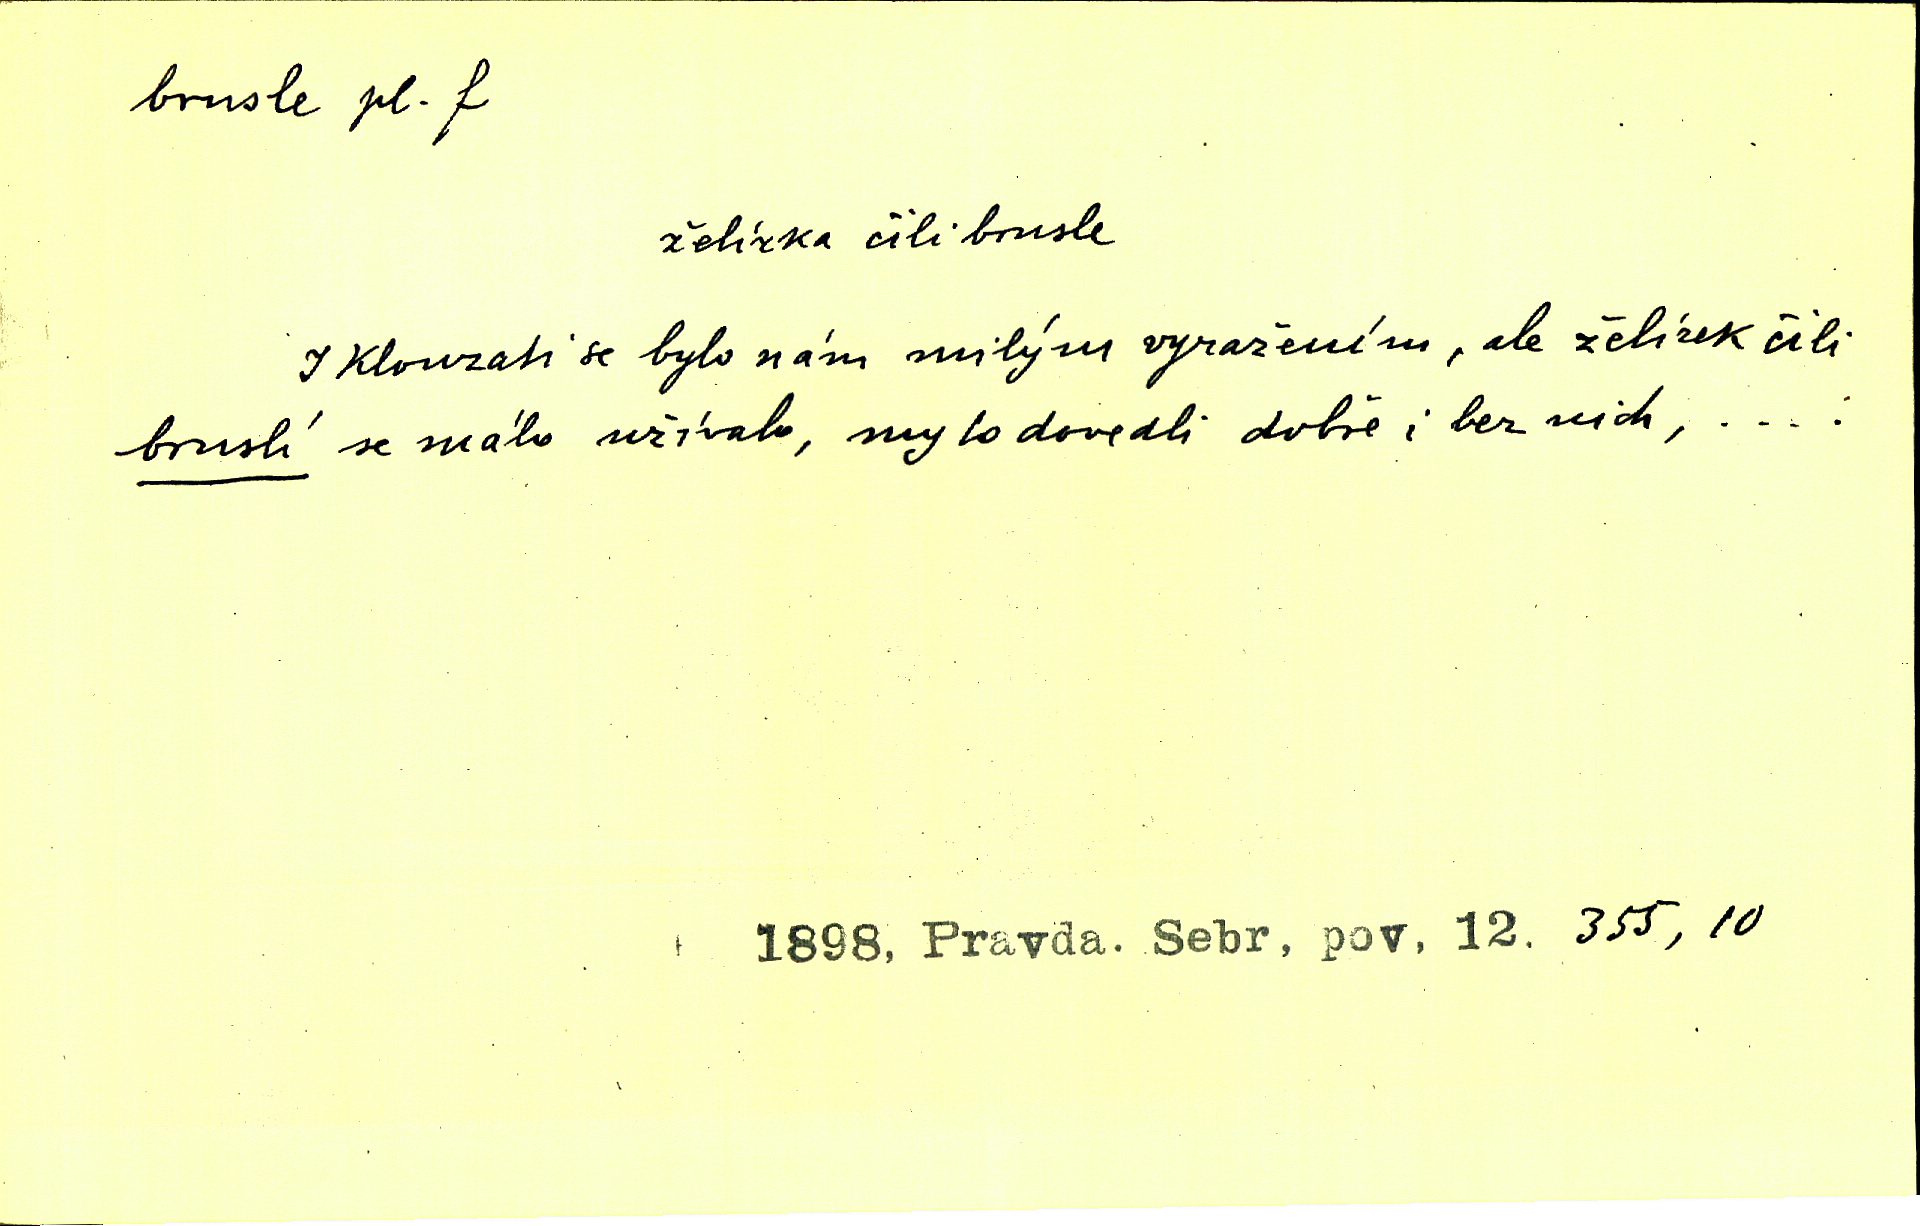 brusle pl. f
želízka čili brusle
I klouzati se bylo nám milým vyražením, ale želízek čili
bruslí se málo užívalo, my to dovedli dobře i bez nich, ....
1898, Pravda. Sebr, pov, 12. 355, 10